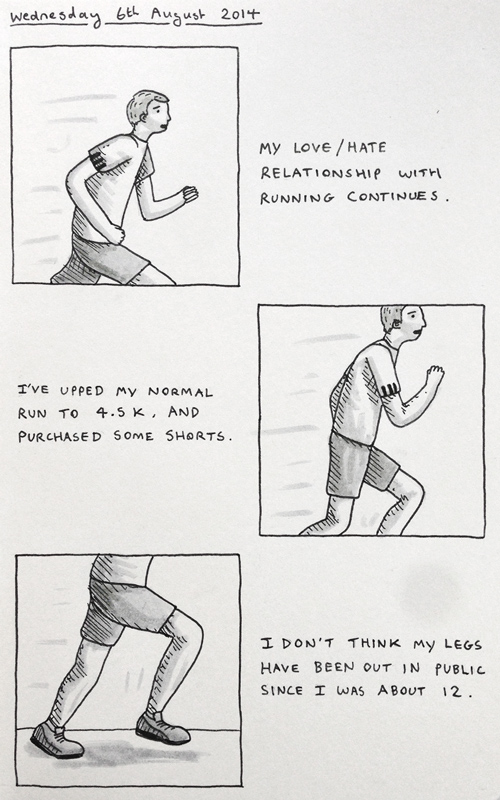 Wednesday 6th August 2014
MY LOVE/HATE
RELATIONSHIP WITH
RUNNING CONTINUES.
I'VE UPPED MY NORMAL
RUN TO 4.5K, AND
PURCHASED SOME SHORTS.
I DON'T THINK MY LEGS
HAVE BEEN OUT IN PUBLIC
SINCE I WAS ABOUT 12.